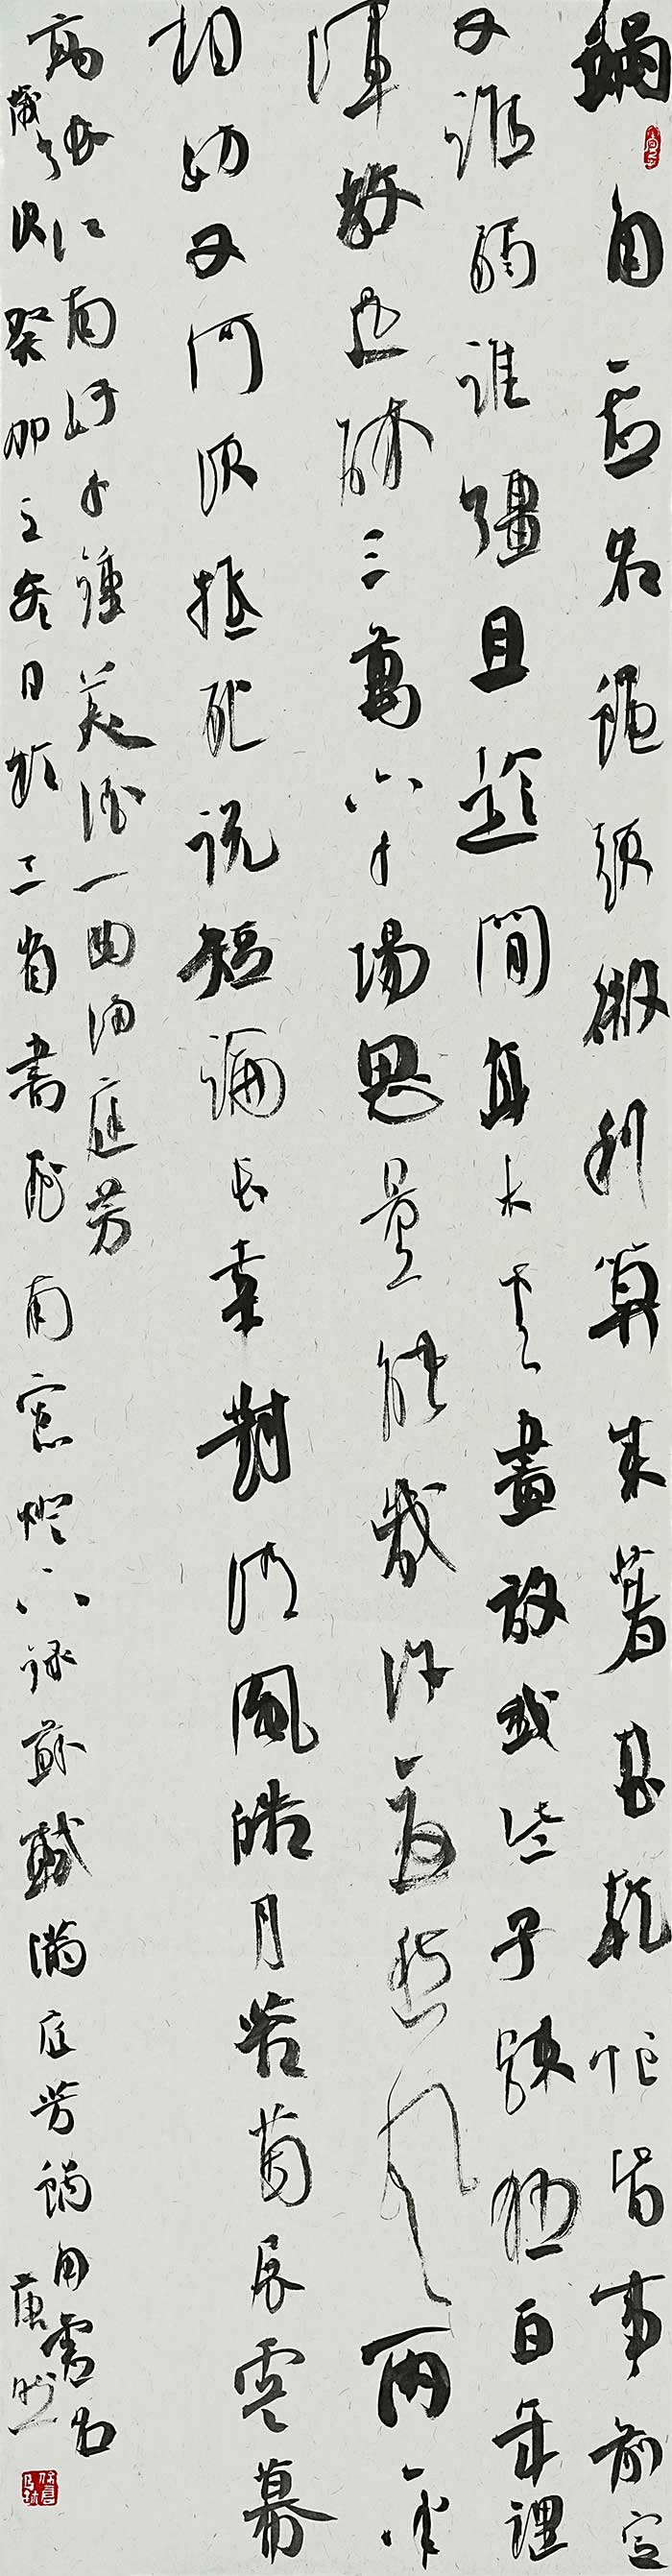 蝸角虛名蠅頭微利算來著甚乾忙皆事前定
又誰弱誰彊且趁閒身未老盡放我些子疎狂百年裡
渾教是醉三萬六千場思量能幾許憂愁風雨一半
相妨又何須抵死說短論長幸對清風皓月苔茵展雲幕
高張江南好千鍾美酒一曲滿庭芳
歲次癸卯之冬日於三省書屋南窓燈下錄蘇軾滿庭芳蝸角虛名